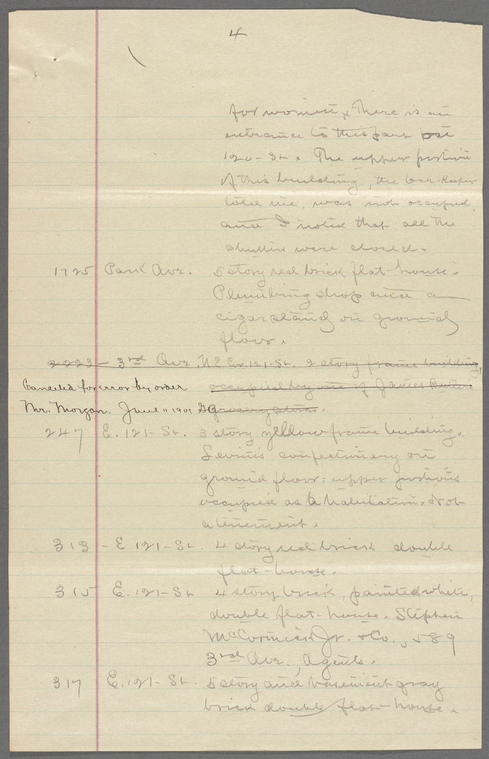 4
for women. There is an
entrance to this part on
120-St. The upper portion
of this building, the bar-keeper
told me, was not occupied,
and I noted that all the
shutters were closed.
1725 Park Ave. 5 story red brick flat-house.
Plumbing shop and a
cigar stand on ground
floor.
2223 - 3rd Ave N.E. Cor. 121-St. 2 story frame building,
Canceled for error by order occupied by one of James Butler
Mr. Morgan. June 11 1901 grocery stores.
247 E. 121-St. 3 story yellow frame building.
Levine's confectionery on
ground floor: upper portions
occupied as a habitation. Not
a tenement.
313 - E 121-St. 4 story red brick double
flat-house.
315 E. 121-St. 4 story brick, painted white,
double flat-house. Stephen
McCormick Jr. & Co., 589
3rd Ave., Agents.
317 E. 121-St. 5 story and basement gray
brick double flat-house.